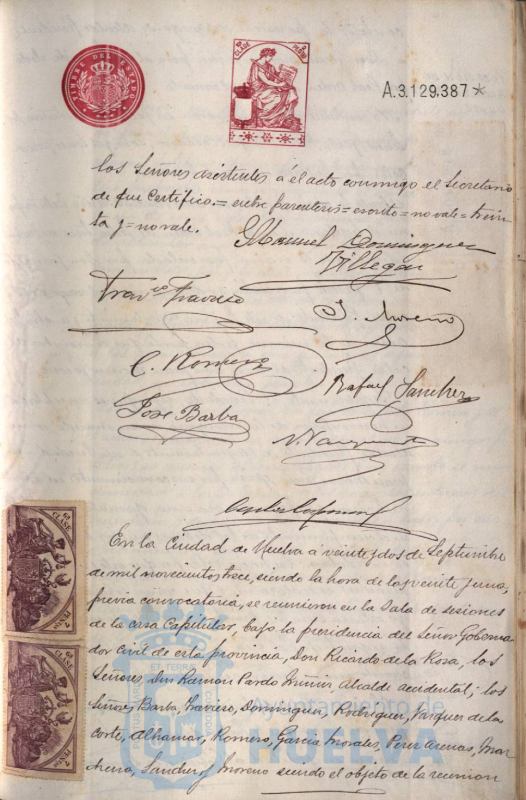 TIMBRE DEL ESTADO
6ª CLASE
A.3.129.387*
los Señores asistentes á él acto conmigo el Secretario
de que Certifico.= entre parentesis = escrito = no vale = trein
ta y = no vale.
Manuel Dominguez
Villegas
Franco Traviero
J. Moreno
C. Romero
Rafael Sanchez
Jose Barba
En la Ciudad de Huelva á veinte y dos de Septiembre
de mil novecientos trece, siendo la hora de las veinte y una,
previa convocatoria, se reunieron en la Sala de sesiones
de la casa Capitular, bajo la presidencia del Señor Goberna
dor Civil de esta provincia, Don Ricardo de la Rosa, los
Señores, Don Ramon Pardo Alcalde accidental; los
Señores Barba, Traviero, Dominguez, Rodriguez, Vazquez de la
Corte, Alhamar, Romero, Garcia Morales, Perez Arenas, Mar
chena, Sanchez y Moreno siendo el objeto de la reunion
6ª CLASE
PESETA
6ª CLASE
PESETA
Ayuntamiento de
HUELVA